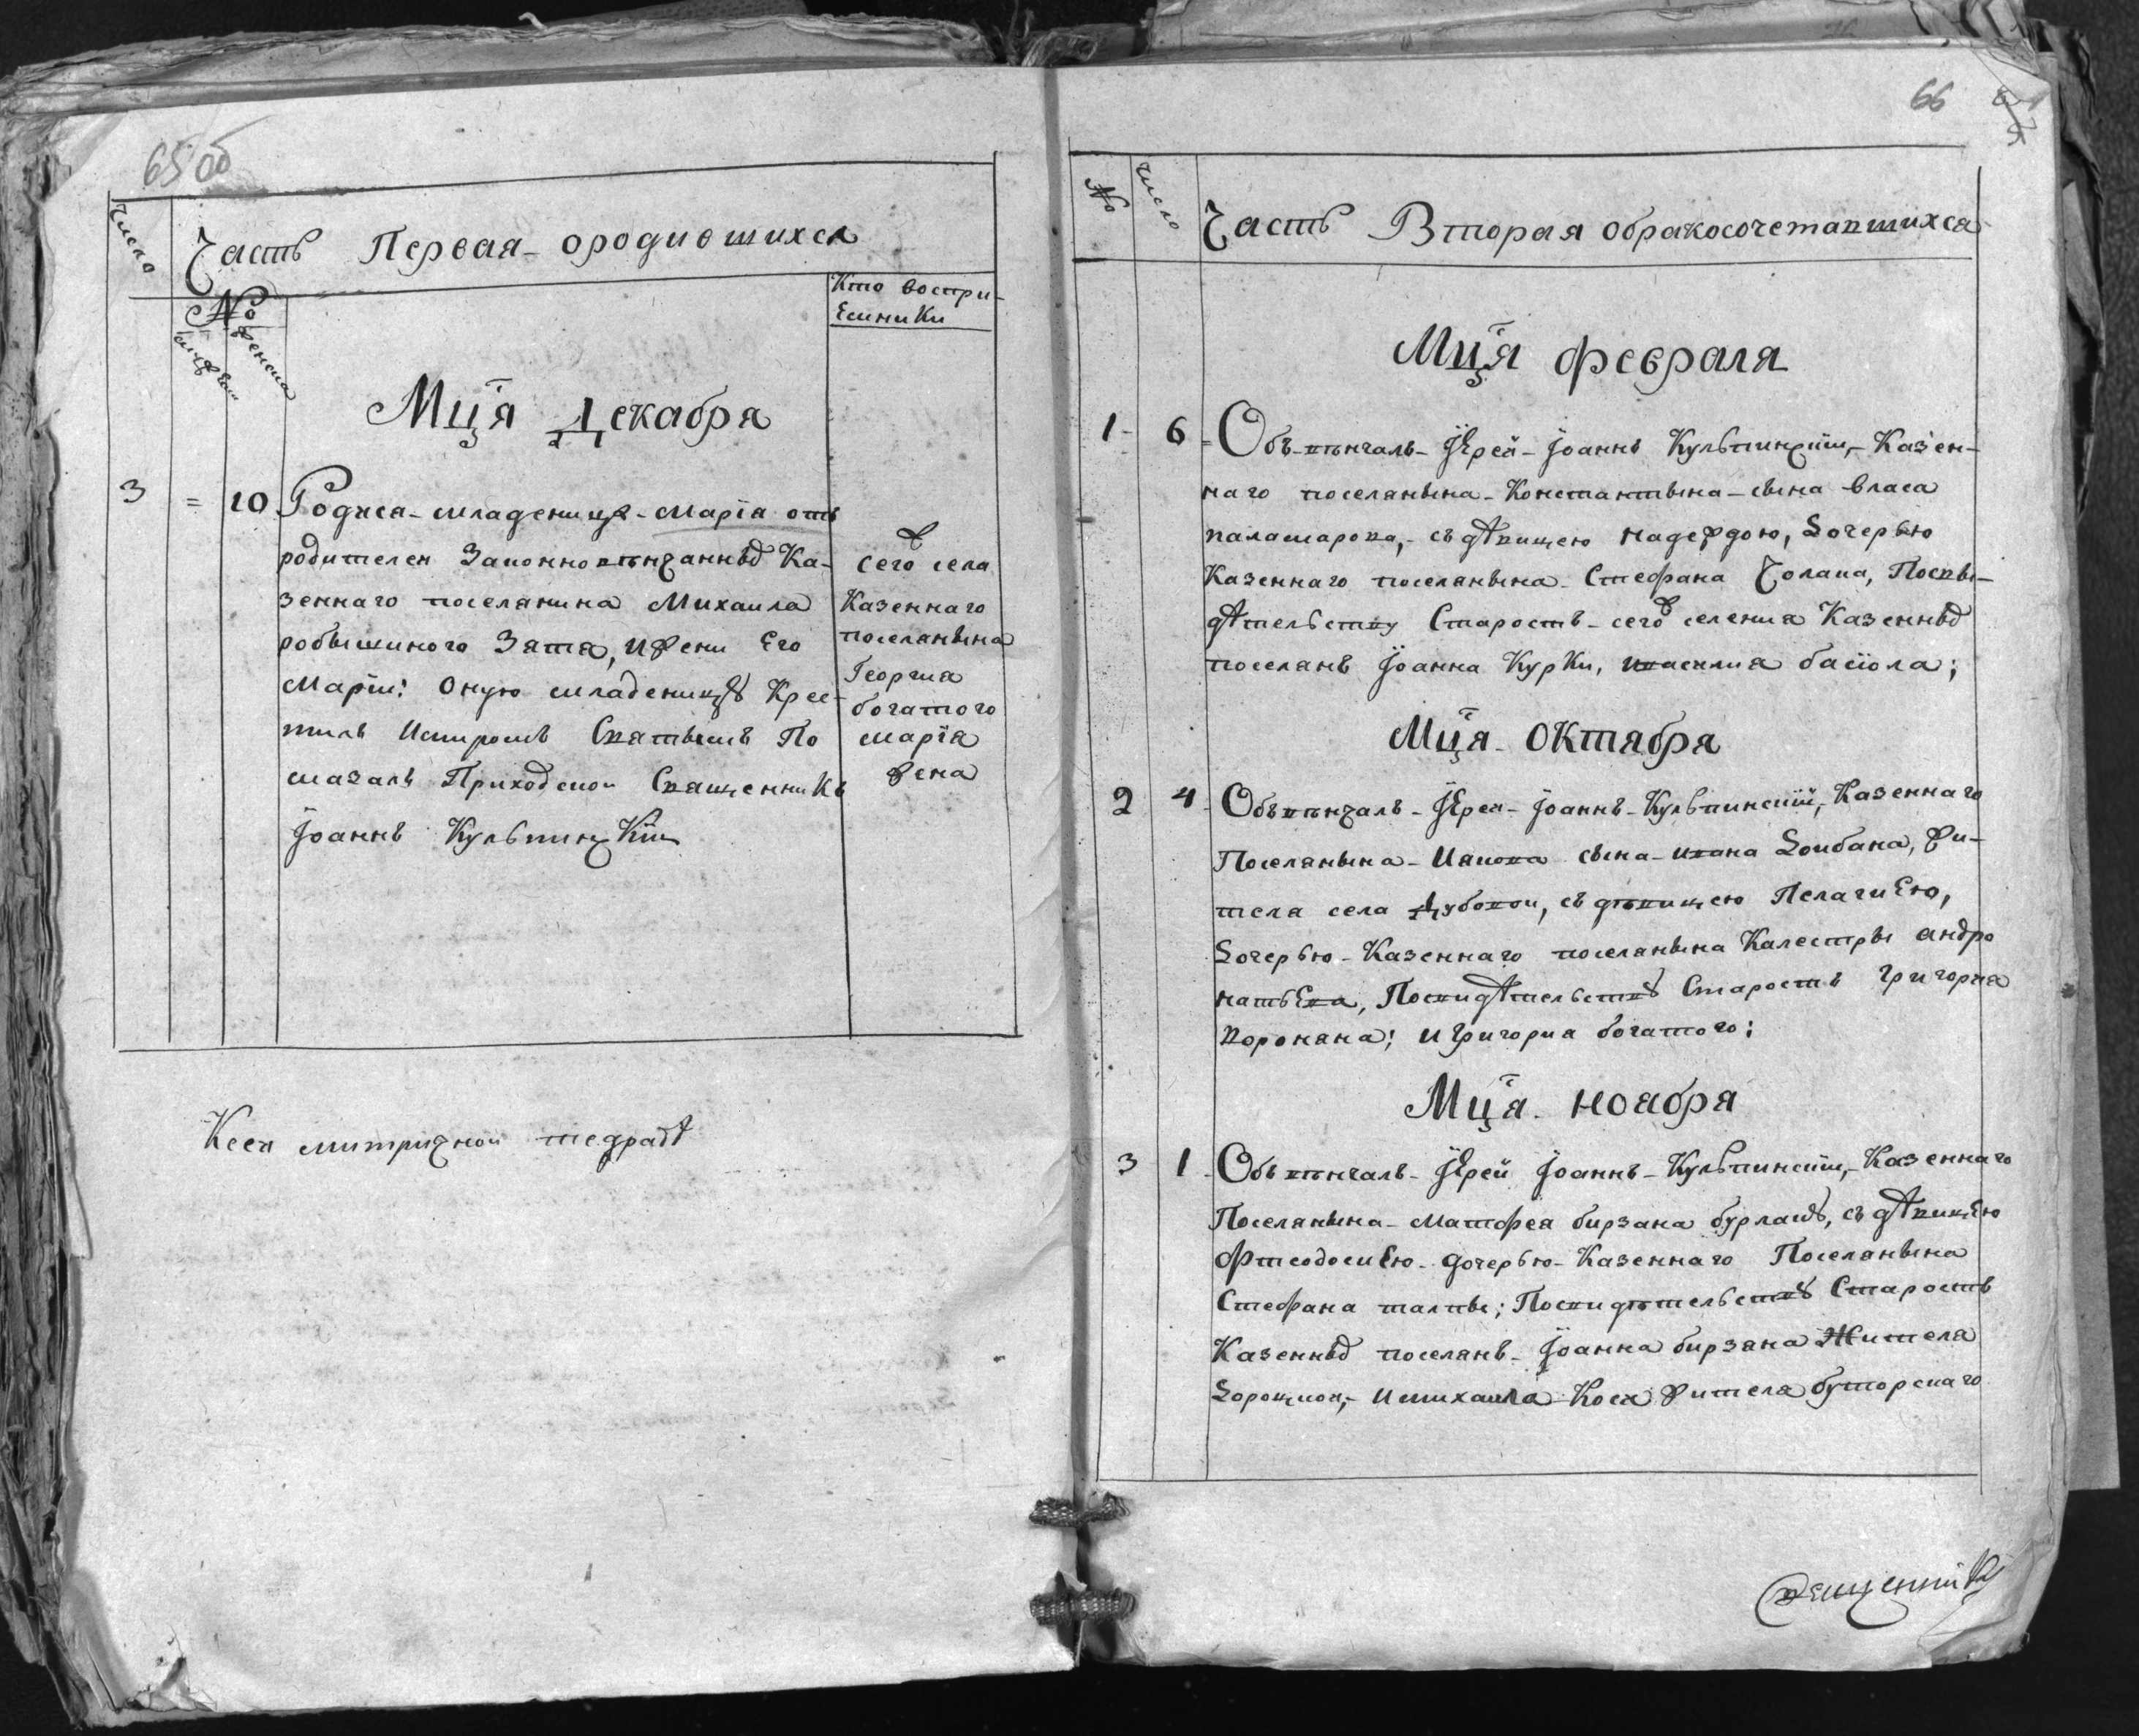 65 об
Число
Часть Первая - ородившихся
№
женска
Кто воспри-
емники
Мца Декабря
3 = 10 Родися - младеница - Марiа отъ
родителеи Законновѣнчанныхъ Ка-
зеннаго поселянина Михаила
робышиного Зятя, ижени Его
Марiи: Оную младеницу Крес-
тилъ Имиромъ Святымъ По
мазалъ Приходскои Священникъ
Iоаннъ КульчицКiи
сего села
Казеннаго
поселанына
Георгиа
богатого
марiа
жена
Ксеи митричнои тедрадѣ
66
№
Число
Часть Вторая обракосочетавшихса
Мца февраля
1 - 6 - Объ-вѣнчалъ - Iерей - Iоаннъ Кульчинскiи, - Казен-
наго поселанына - Константына - сына власа
паламарова, - съ дѣвицею надеждою, дочерью
Казеннаго поселанына - Стефана Чолана, Посвы-
дѣтельству Старостъ - сего селениа Казенныхъ
поселанъ Iоанна КурКи, ивасилиа басiола;
Мца - Октабра
2 4 - Объвѣнчалъ - Iерея - Iоаннъ - Кульчинскiй, Казеннаго
Поселанына - Иякова сына - ивана Зомбана, жи-
теля села Дубовои, съ дѣвицею ПелагиЕю,
дочерью - Казеннаго поселанына Калестры андро
натьЕва, Посвидѣтельству Старостъ Григориа
воронана; иГригориа богатого;
Мца - ноабра
3 1 - Объвѣнчалъ - Iерей Iоаннъ - Кульчинскiи, - Казеннаго
Поселанына - Матфея бирзана бурлаку, съ дѣвицЕю
ФтеодосиЕю - дочерью - Казеннаго Поселанына
Стефана талпы; Посвидѣтельству Старостъ
Казенныхъ поселанъ - Iоанна бирзана Жителя
дороцкои, - имихаила Коса жителя буторскаго